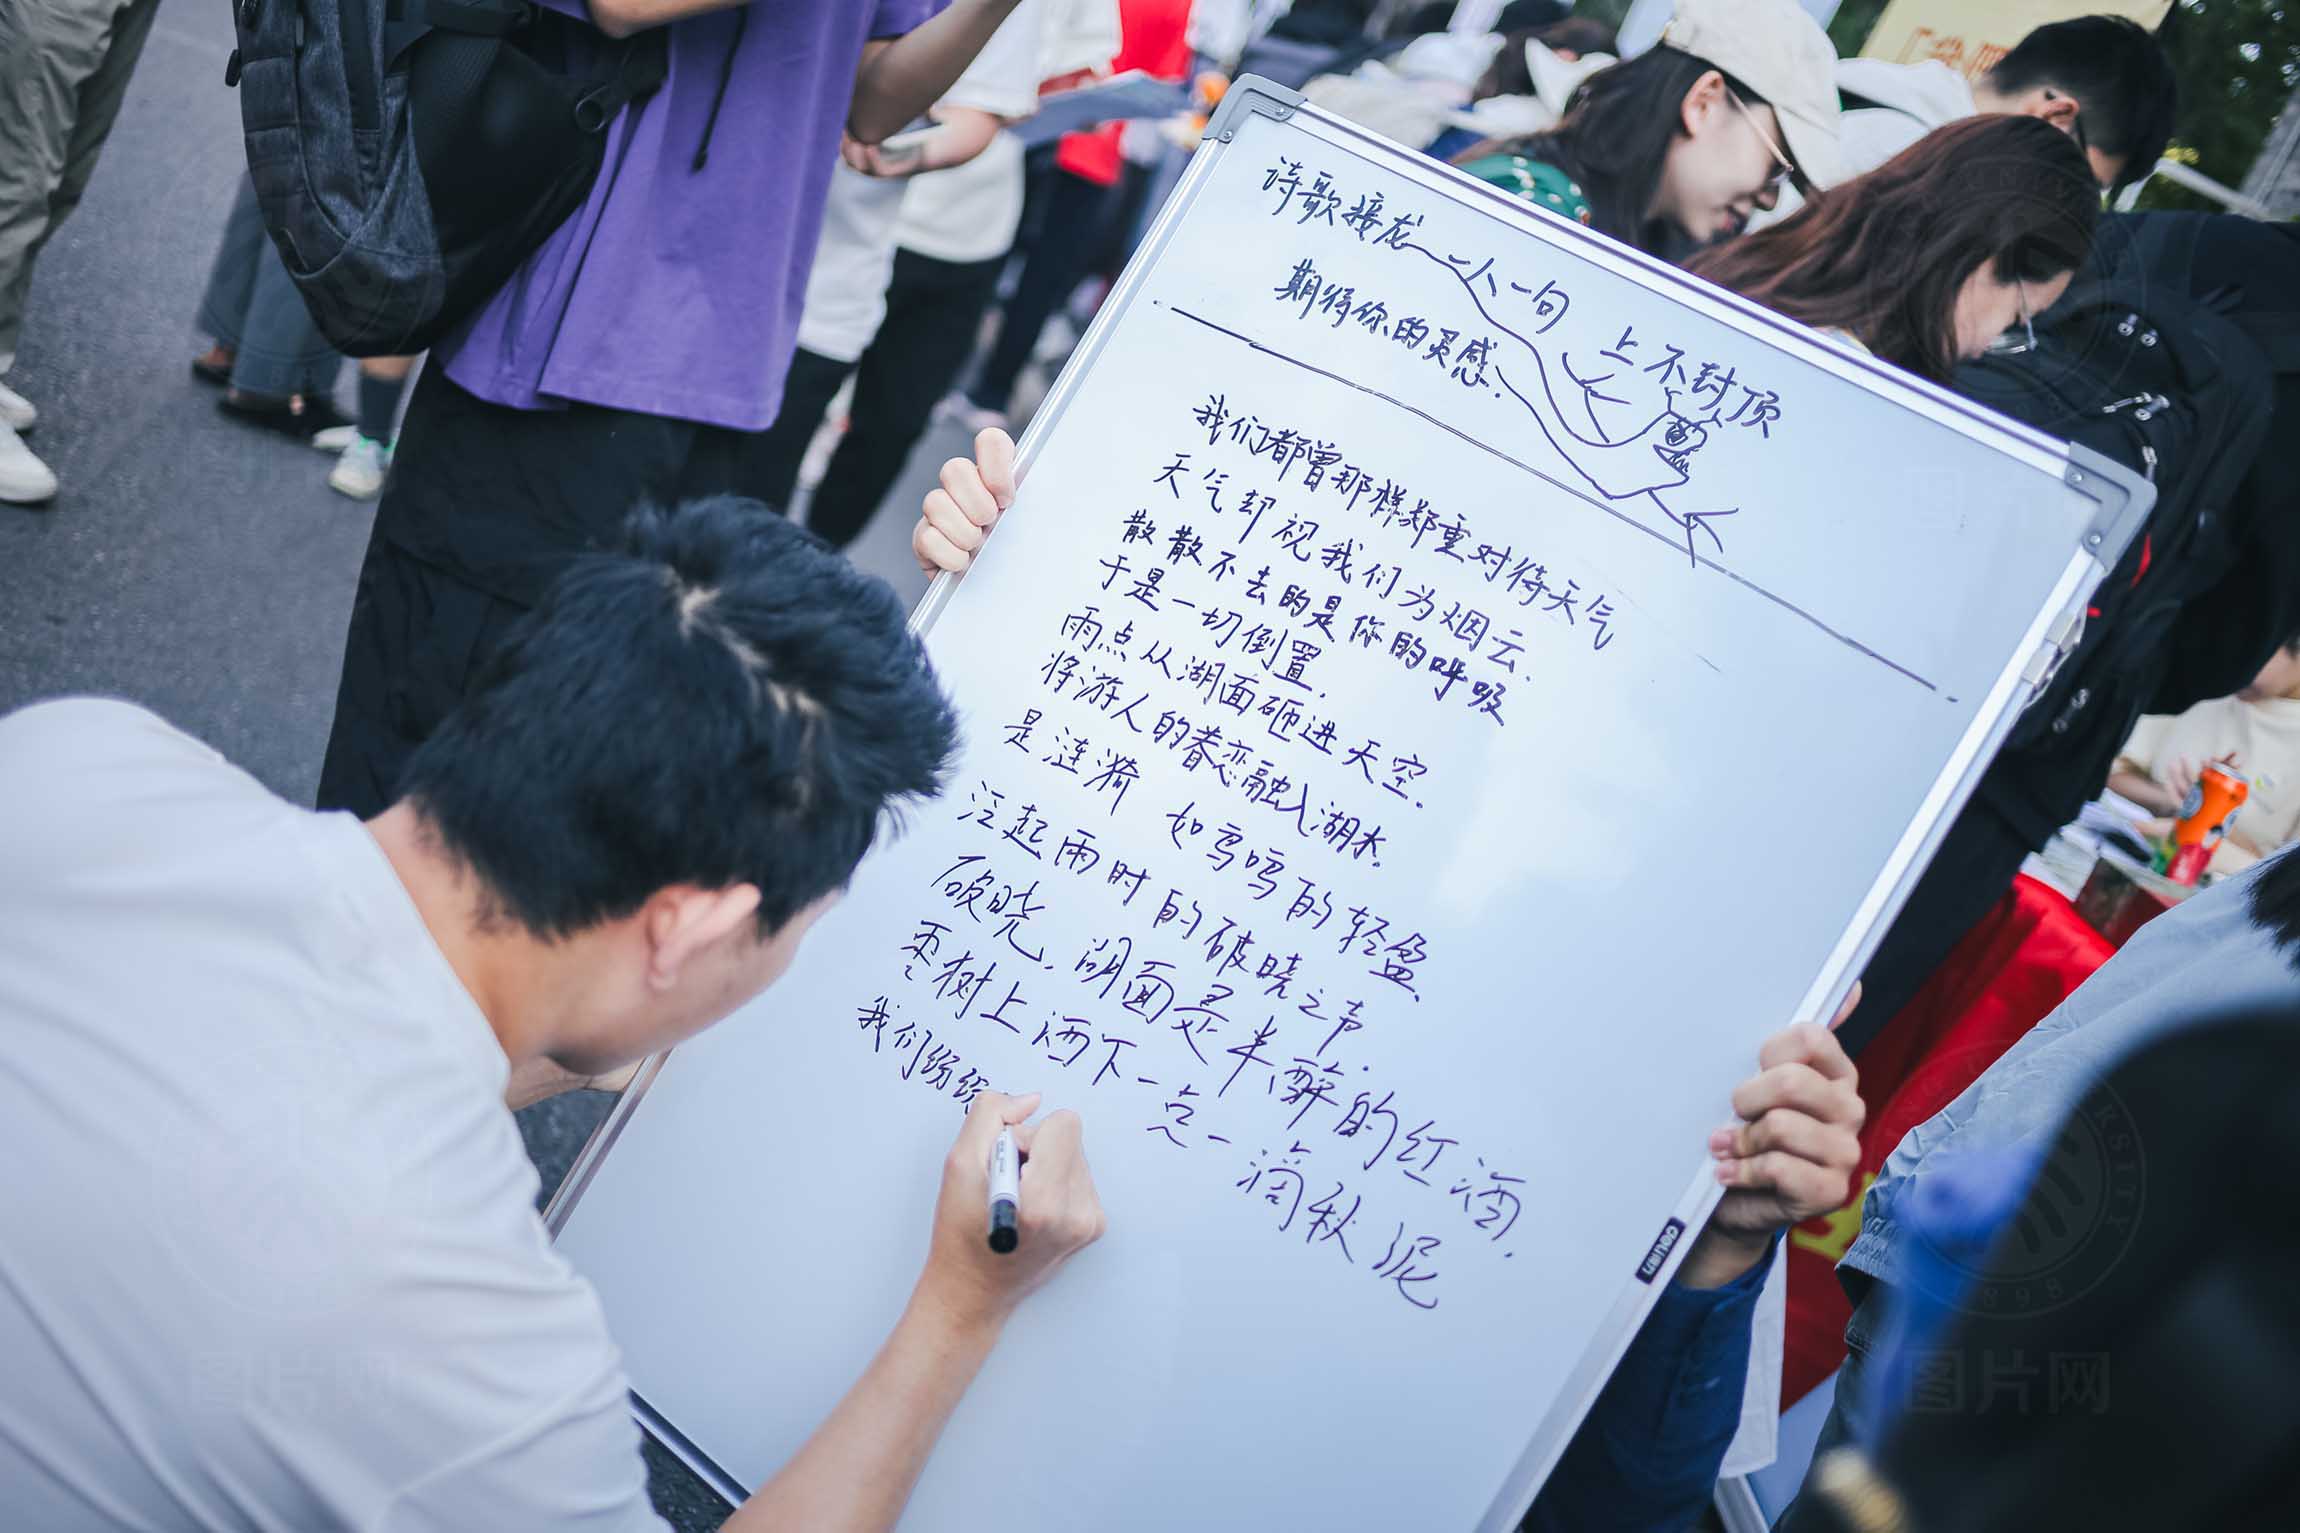 诗歌接龙 一人一句 上不封顶
期待你的灵感.
我们都曾那样郑重对待天气
天气却视我们为烟云.
散散不去的是你的呼吸
于是一切倒置.
雨点从湖面砸进天空.
将游人的眷恋融入湖水.
是涟漪 如鸟鸣的轻盈.
泛起雨时的破晓之声.
破晓.湖面是半醉的红酒.
枣树上洒下一点一滴秋泥
我们纷纷
图片网
1898
图片网